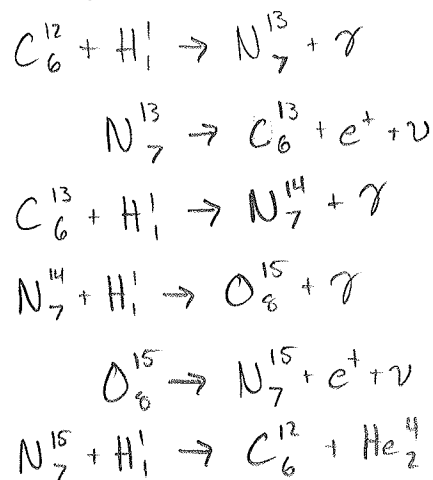 C₆¹² + H₁¹ → N₇¹³ + γ
N₇¹³ → C₆¹³ + e⁺ + ν
C₆¹³ + H₁¹ → N₇¹⁴ + γ
N₇¹⁴ + H₁¹ → O₈¹⁵ + γ
O₈¹⁵ → N₇¹⁵ + e⁺ + ν
N₇¹⁵ + H₁¹ → C₆¹² + He₂⁴